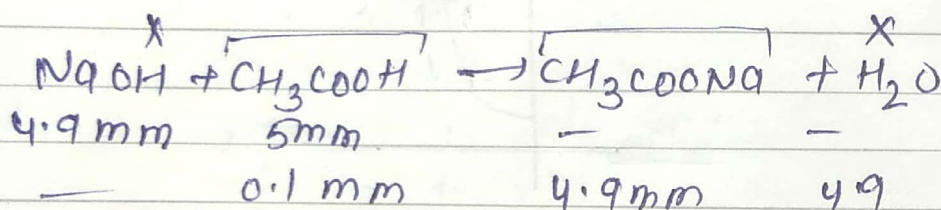 x x
NaOH + CH₃COOH → CH₃COONa + H₂O
4.9 mm 5mm – –
– 0.1 mm 4.9mm 4.9